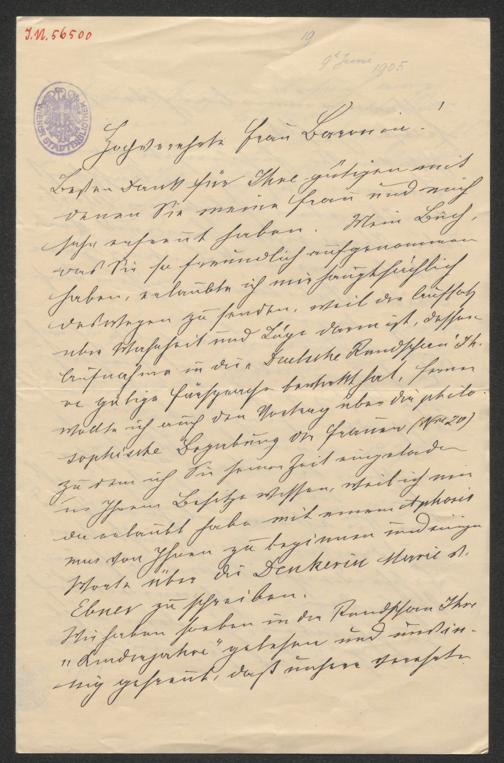 J.N. 56500
19
9t Juni
1905
WIENER STADTBIBLIOTHEK
Hochverehrte Frau Baronin!
Besten Dank für Ihre gütigen mit
denen Sie meine Frau und mich
sehr erfreut haben. Mein Buch,
was Sie so freundlich aufgenommen
haben, erlaubte ich mir hauptsächlich
deswegen zu senden, weil der Aufsatz
über Wahrheit und Lüge darin ist, dessen
Aufnahme in die „Deutsche Rundschau" Ih-
re gütige Fürsprache bewirkt hat, ferner
wollte ich auch den Vortrag über die philo-
sophische Begabung der Frauen (No 20)
zu dem ich Sie seiner Zeit eingeladen
in Ihrem Besitze wissen, weil ich mir
da erlaubt habe mit einem Aphoris-
mus von Ihnen zu beginnen und einige
Worte über die Denkerin Marie v.
Ebner zu schreiben.
Wir haben soeben in der Rundschau Ihre
„Kinderjahre" gelesen und uns in-
nig gefreut, daß unsere verehrte